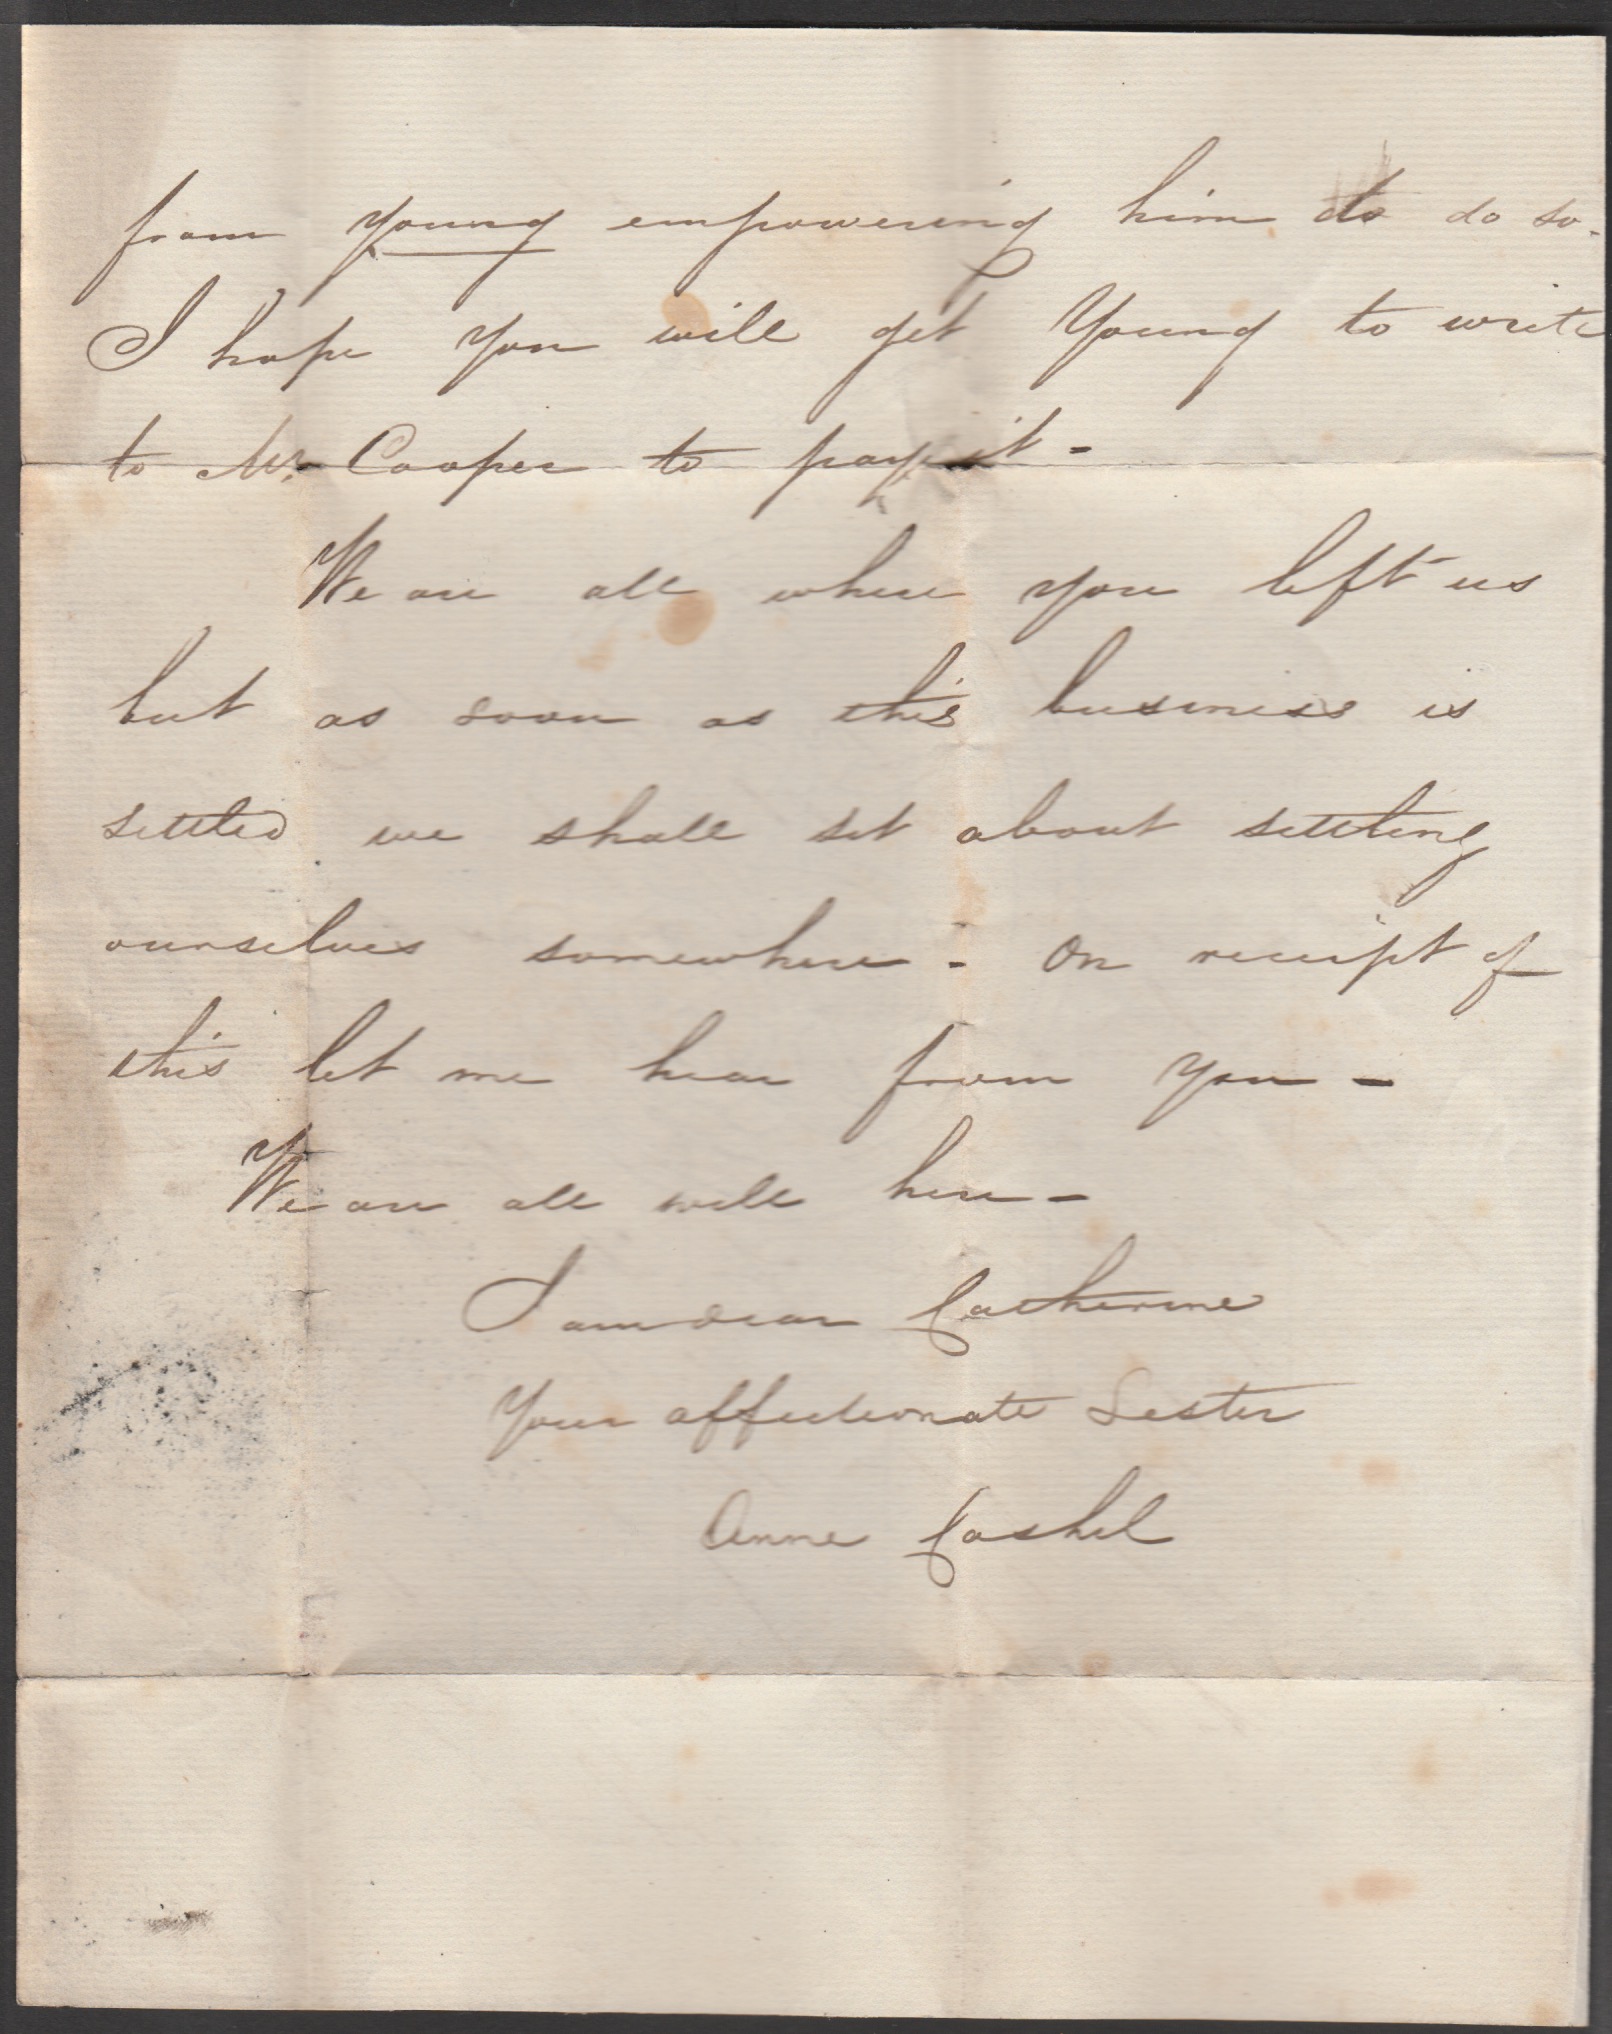 from young empowering him to do so.
I hope you will get Young to write
to Mr. Cooper to pay it -
We are all where you left us
but as soon as this business is
settled we shall set about settling
ourselves somewhere - On receipt of
this let me hear from you -
We are all well here -
I am dear Catherine
Your affectionate Sister
Anne Cashel